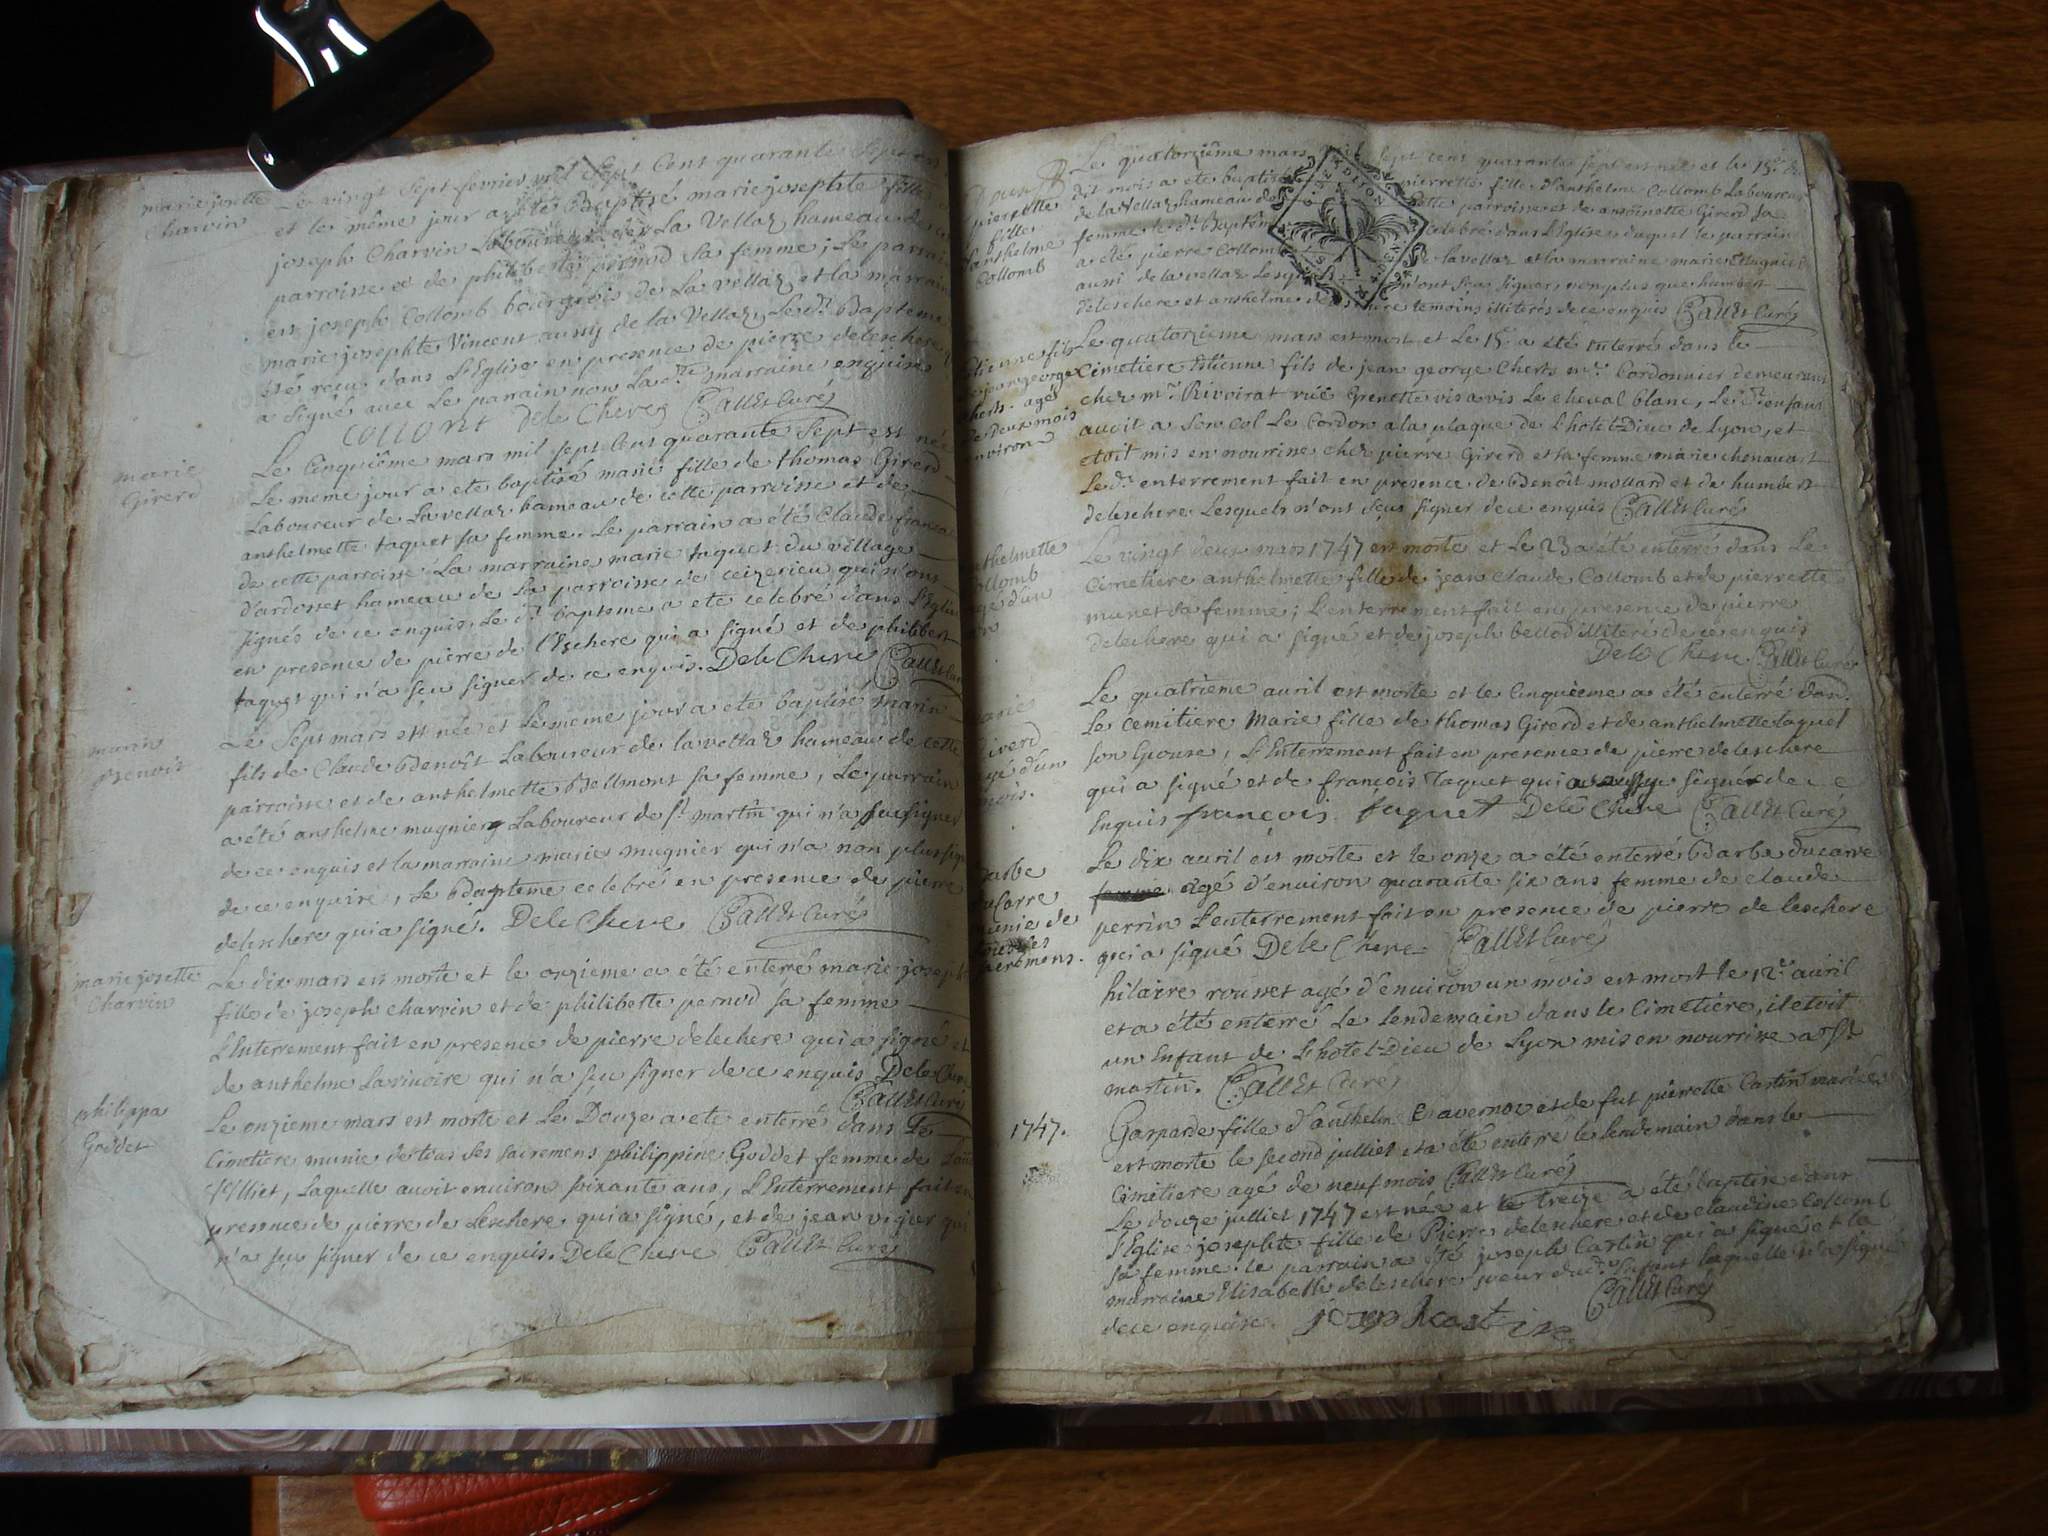 marie josette
Charvin
Le vingt sept fevrier mil sept Cent quarante sept est
et le même jour a été Baptisé marie josephte fille
joseph Charvin Laboureur de La Vellaz hameau de
parroisse et de philiberte pernod sa femme ; Le parrain
est joseph Collomb bourgeois de La vellaz et la marraine
marie josephte Vincent aussy de la Vellaz, Le dt Bapteme
été reçu dans L'Eglise en presence de pierre delechere
a signé avec Le parrain non La dte marraine enquise
COLLONT Dele Chere Ballet Curé
marie
Girerd
Le Cinquième mars mil sept Cent quarante sept est née
Le meme jour a eté baptisé marie fille de thomas Girerd
Laboureur de La vellaz hameau de cette parroisse et de
anthelmette taquet sa femme. Le parrain a été Claude
de cette parroisse La marraine marie taquet du village
d'ardosset hameau de La parroisse de ceizerieu qui n'ont
signés de ce enquis. Le dt bapteme a eté celebré dans l'Eglise
en presence de pierre de l'Echere qui a signé et de philibert
taquet qui n'a sçu signer de ce enquis. Dele Chere Ballet Curé
marin
Benoit
Le Sept mars est née et Le meme jour a eté baptisé marin
fils de Claude Benoît Laboureur de la vellaz hameau de cette
parroisse et de anthelmette Bellmont sa femme, Le parrain
a été anthelme mugnier Laboureur de St martin qui n'a sçu signer
de ce enquis et la marraine marie mugnier qui n'a non plus
de ce enquise, Le Bapteme celebré en presence de pierre
deleschere qui a signé. Dele Chere Ballet Curé
marie josette
Charvin
Le dix mars est morte et le onzieme a été enterré marie
fille de joseph charvin et de philiberte pernod sa femme
L'Enterrement fait en presence de pierre delechere qui a signé et
de anthelme Lavinoire qui n'a sçu signer de ce enquis Dele Chere
Ballet Curé
philippa
Goddet
Le onzieme mars est morte et Le Douze a ete enterré dans Le
Cimetiere munie de tous ses sacremens philippine Goddet femme de
Laquelle avoit environ soixante ans, L'Enterrement fait en
presence de pierre de Leschere qui a signé, et de jean viger qui
n'a sçu signer de ce enquis. Dele Chere Ballet Curé
pierrette
fille
d'anthelme
Collomb
Le quatorzième mars mil sept cent quarante sept est née et le 15e du
dit mois a eté baptisé pierrette fille d'anthelme Collomb Laboureur
de la Vellaz hameau de cette parroisse et de antoinette Girerd sa
femme le dt Bapteme celebré dans L'Eglise duquel le parrain
a été pierre Collomb de la vellaz et la marraine marie Mugnier
aussi de la vellaz Lesquels n'ont sçu signer, non plus que humbert
deleschere et anthelme deleschere temoins illiterés de ce enquis Ballet Curé
A DIJON
Etienne fils
de jean george
Cherts. agé
de Deux mois
environ
Le quatorzieme mars est mort et Le 15e a été enterré dans le
Cimetiere Etienne fils de jean george Cherts me Cordonnier demeurant
chez mr Rivoirat ruë Grenette vis a vis Le cheval blanc, Le dt enfant
avoit a son Col Le Cordon a la plaque de L'hotel-Dieu de Lyon, et
etoit mis en nourrine chez pierre Girerd et sa femme marie chenavast
Le dt enterrement fait en presence de Benoît mollard et de humbert
deleschere Lesquels n'ont sçus signer de ce enquis Ballet Curé
anthelmette
Collomb
agé d'un
an
Le vingt deux mars 1747 est morte et Le 23 a été enterré dans Le
Cimetiere anthelmette fille de jean Claude Collomb et de pierrette
munet sa femme ; L'enterrement fait en presence de pierre
delechere qui a signé et de joseph bellod illiteré de ce enquis
Dele Chere Ballet Curé
marie
Girerd
agé d'un
mois.
Le quatrieme avril est morte et le Cinquieme a été enterré dans
Le Cemitiere Marie fille de thomas Girerd et de anthelmette taquet
son Epouse, L'Enterrement fait en presence de pierre deleschere
qui a signé et de françois Taquet qui a aussy signé de ce
Enquis françois taquet Dele Chere Ballet Curé
Barbe
ducarre
munie de
tous les
sacremens.
Le dix avril est morte et le onze a été enterré Barbe ducarre
agé d'environ quarante six ans femme de Claude
perrin L'enterrement fait en presence de pierre de leschere
qui a signé Dele Chere Ballet Curé
hilaire rousset agé d'environ un mois est mort le 12e avril
et a été enterré Le Lendemain dans le Cimetiere, il etoit
un Enfant de L'hotel-Dieu de Lyon mis en nourrine a St
martin. Ballet Curé
1747.
Gasparde fille d'anthelm Travernov et de fut pierrette Castin mariée
est morte le second julliet et a été enterré le lendemain dans le
Cimetiere agé de neuf mois Ballet Curé
Le douze julliet 1747 est née et le treize a été baptisé dans
l'Eglise josephte fille de Pierre deleschere et de claudine Collomb
sa femme. le parrain a été joseph Castin qui a signé et la
marraine Elisabeth deleschere soeur du dt Enfant laquelle n'a signé
de ce enquise. josephcastin Ballet Curé